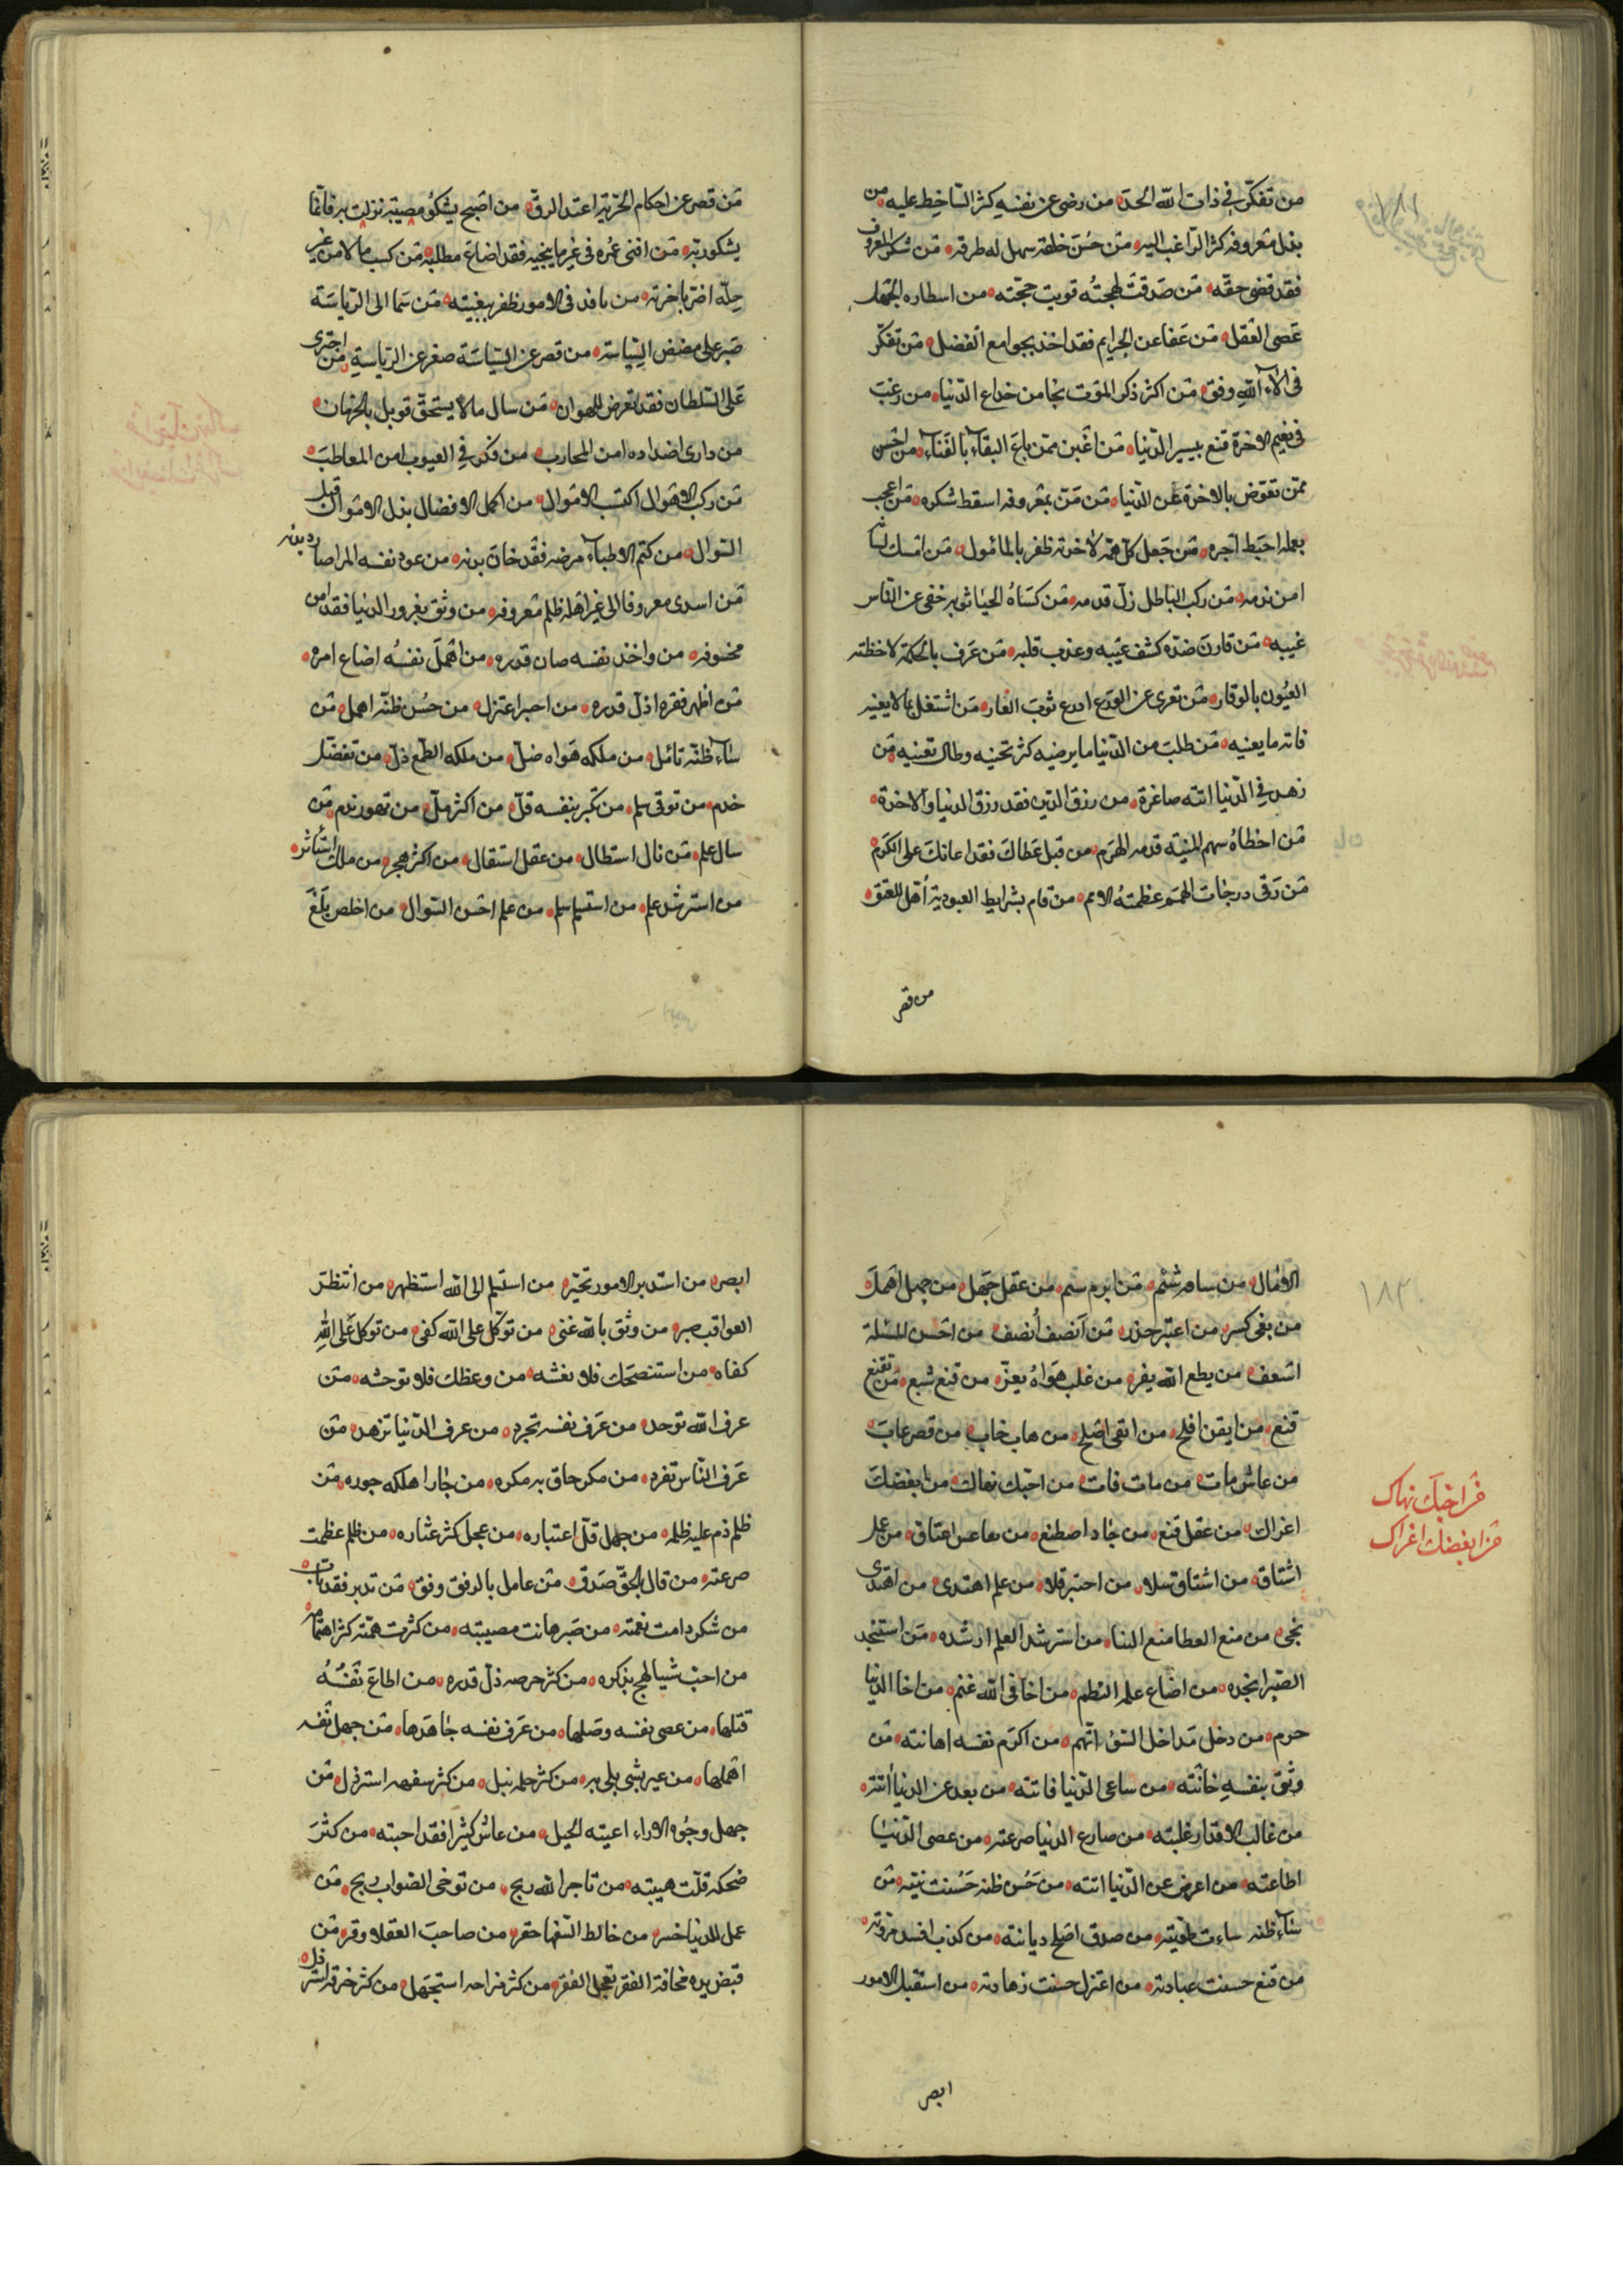 من تفكّر في ذات الله الحد من رضى عن نفسه كثر السّاخط عليه من
بذل معروفه كثر الرّاغب اليه من حسن خلقه سهل له طرقه من شكر المعروف
فقد قضى حقّه من صدقت لهجته قويت حجّته من اسطاره الجهل
عصى العقل من عفا عن الجرايم فقد اخذ بجوامع الفضل من تفكّر
في الآء الله وفق من اكثر ذكر الموت نجا من خداع الدّنيا من رغب
في نعيم الاخرة قنع بيسير الدّنيا من اغبن ممّن باع البقاء بالفناء من اخسر
ممّن تعوّض بالاخرة عن الدّنيا من منّ بمعروفه اسقط شكره من اعجب
بعمله احبط اجره من جعل كلّ همّه لاخرته ظفر بالمأمول من امسك لسا
امن ندمه من ركب الباطل زلّ قدمه من كساه الحيا ثوبه خفى عن النّاس
عيبه من قارن ضدّه كشف عيبه وعذب قلبه من عرف بالحكمة لاحظته
العيون بالوقار من تعرى عن الورع ادرع ثوب العار من اشتغل بما لا يعنيه
فاته ما يعنيه من طلب من الدّنيا ما يرضيه كثر تجنيه وطال تعنيه من
زهد في الدّنيا اتته صاغرة من رزق الدّين فقد رزق الدنيا والاخرة
من اخطاه سهم المنيّة قدمه الهرم من قبل عطاك فقد اعانك على الكرم
من رقى درجات الهمم عظمته الامم من قام بشرايط العبودية أهّل للعتق
من قصر
من قصر عن احكام الحرّية اعتد الرقّ من اصبح يشكو مصيبة نزلت به فانّما
يشكو ربّه من افنى عمره في غير ما ينجيه فقد اضاع مطلبه من كسب مالا من غير
حلّه اضرّ باخرته من بافد في الامور ظفر ببغيته من سما الى الرّياسة
صبر على مضض السّياسة من قصر عن السّياسة صغر عن الرّياسة من اجترى
على السّلطان فقد تعرض للهوان من سال ما لا يستحقّ قوبل بالحرمان
من دارى اضداده امن المحارب من فكر في العيوب امن المعاطب
من ركب الاهوال اكتسب الاموال من اكمل الافضال بذل الاموال قبل
السّوال من كتم الاطباء مرضه فقد خان بدنه من عود نفسه المراصا ردينه
من اسدى معروفا الى غير اهله ظلم معروفه من وثق بغرور الدنيا فقد امن
مخوفه من واخذ نفسه صان قدره من اهمل نفسه اضاع امره
من اظهر فقره اذلّ قدره من احبر اعتزل من حسن ظنّه اهمل من
ساء ظنّه تائمل من ملكه هواه ضلّ من ملكه الطّمع ذلّ من تفضّل
خدم من توقى سلم من تكبّر بنفسه قلّ من اكثر ملّ من تهور ندم من
سال علم من نال استطال من عقل استقال من اكثر هجر من ملك استأثر
من استرشد علم من استسلم سلم من علم احسن السّوال من اخلص بلغ
١٨٢
الامال من سامر شتم من ابرم سئم من عقل جهل من جهل اهمل
من بغى كسر من اعتبر حذر من انصف أنصف من احسن المسئلة
اسعف من يطع الله يفز من غلب هواه يعزّ من قنع شبع من تقنع
قنع من ايقن افلح من اتقى اصلح من هاب خاب من قصر عاب
من عاش مات من مات فات من احبّك نهاك من ابغضك
اغراك من عقل قنع من جاد اصطنع من تعاعس اعتاق من عمل
اشتاق من اشتاق سلا من احتبر قلا من علم اهتدى من اهتدى
نجى من منع العطا منع الثنا من استرشد العلم ارشده من استنجد
الصّبر انجده من اضاع علمه النظم من اخا في الله غنم من اخا الدّنيا
حرم من دخل مداخل السّؤ اتّهم من اكرم نفسه اهانته من
وثق بنفسه خانته من ساعى الدّنيا فاتته من بعد عن الدنيا اتته
من غالب الاقدار غلبته من صارع الدنيا صرعته من عصى الدّنيا
اطاعته من اعرض عن الدّنيا اتته من حسن ظنه حسنت نيته من
ساء ظنه ساءت طويّته من صدق اصلح ديانته من كذب افسد مروّته
من قنع حسنت عبادته من اعتزل حسنت زهادته من استقبل الامور
فمن احبّك نهاك
من ابغضك اغراك
ابصر
ابصر من استدبر الامور تحيّر من استسلم الى الله استظهر من انتظر
العواقب صبر من وثق بالله غنى من توكّل على الله كفى من توكل على الله
كفاه من استنصحك فلا تغشه من وعظك فلا توحشه من
عرف الله توحد من عرف نفسه تجرد من عرف الدّنيا تزهد من
عرف النّاس تفرد من مكر حاق به مكره من جار اهلكه جوره من
ظلم ذم عليه ظلمه من جهل قلّ اعتباره من عجل كثر عثاره من ظلم عظمت
صرعته من قال بالحقّ صدق من عامل بالرفق وفق من تدبر فقد تاب
من شكر دامت نعمته من صبر هانت مصيبته من كثرت همّته كثر اهتمامه
من احبّ شيا لهج بذكره من كثر حرصه ذلّ قدره من اطاع نفسه
قتلها من عصى نفسه وصلها من عرف نفسه جاهدها من جهل نفسه
اهملها من عير بشى بلى به من كثر حلمه نبل من كثر سفهه استرذل من
جهل وجوه الاراء اعيته الحيل من عاش كثيرا فقد احبته من كثر
ضحكه قلّت هيبته من تاجر الله ربح من توخى الصّواب ربح من
عمل للدنيا خسر من خالط السّفها حقر من صاحب العقلا وقر من
قبض يده مخافة الفقر تعجل الفقر من كثر مزاحه استجهل من كثر خرقه استرذل